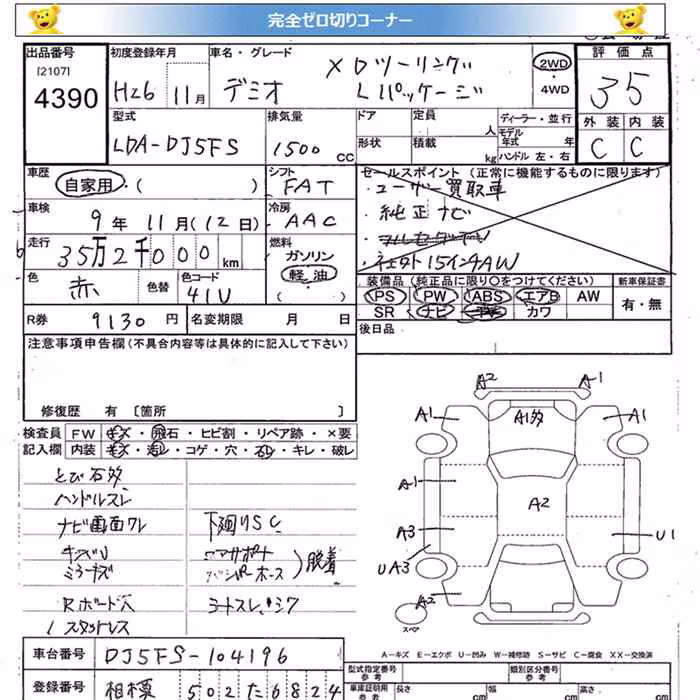 完全ゼロ切りコーナー
出品番号 [2107] 4390
初度登録年月 H26 11月
車名・グレード デミオ XDツーリング Lパッケージ
2WD・4WD
評価点 3.5
外装 C 内装 C
型式 LDA-DJ5FS
排気量 1500 cc
ドア 形状
定員 人 積載 kg
ディーラー・並行
モデル年式 年
ハンドル 左・右
車歴 自家用・( )
シフト FAT
車検 9年 11月 (12日)
冷房 AAC
走行 35万2千000km
燃料 ガソリン 軽油 ( )
色 赤 色替 色コード 41V
R券 9130円 名変期限 月 日
セールスポイント (正常に機能するものに限ります)
・ユーザー買取車
・純正ナビ
15インチAW
装備品 (純正品に限り○をつけてください) 新車保証書
PS PW ABS エアB AW 有・無
SR ナビ カワ
後日品
注意事項申告欄 (不具合内容等は具体的に記入して下さい)
修復歴 有 〔箇所 〕
検査員記入欄
FW キズ・飛石・ヒビ割・リペア跡・×要
内装 キズ・汚レ・コゲ・穴・スレ・キレ・破レ
とび石多
ハンドルスレ
ナビ画面ワレ
ミラーキズ
Rボード穴
スタットレス
下廻りSC
脱着
シートスレ・シワ
A2 A1
A1 A1多 A1
A1
A2
A3 U1
UA3
A2
スペア
A-キズ E-エクボ U-凹み W-補修跡 S-サビ C-腐食 XX-交換済
車台番号 DJ5FS-104196
登録番号 相模 502 た 6824
型式指定番号 参考 類別区分番号 参考
車庫証明用 参考 長さ cm 幅 cm 高さ cm